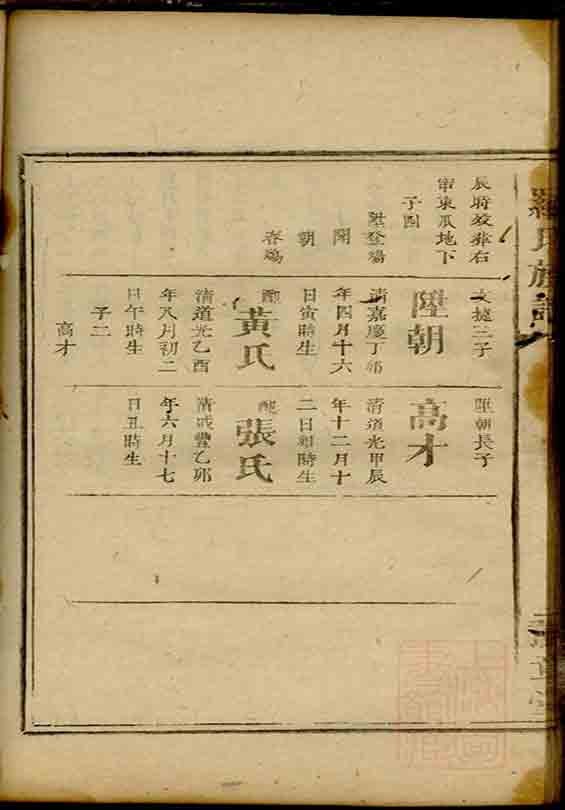 羅氏族譜
辰時歿葬右
審東瓜地下
子四
陞登瑒
開
朝
春瑒
文㨿三子
陞朝
清嘉慶丁卯
年四月十六
日寅時生
配
黃氏
清道光乙酉
年八月初二
日午時生
子二
高才
陞朝長子
高才
清道光甲辰
年十二月十
二日卯時生
配
張氏
清咸豐乙卯
年六月十七
日丑時生